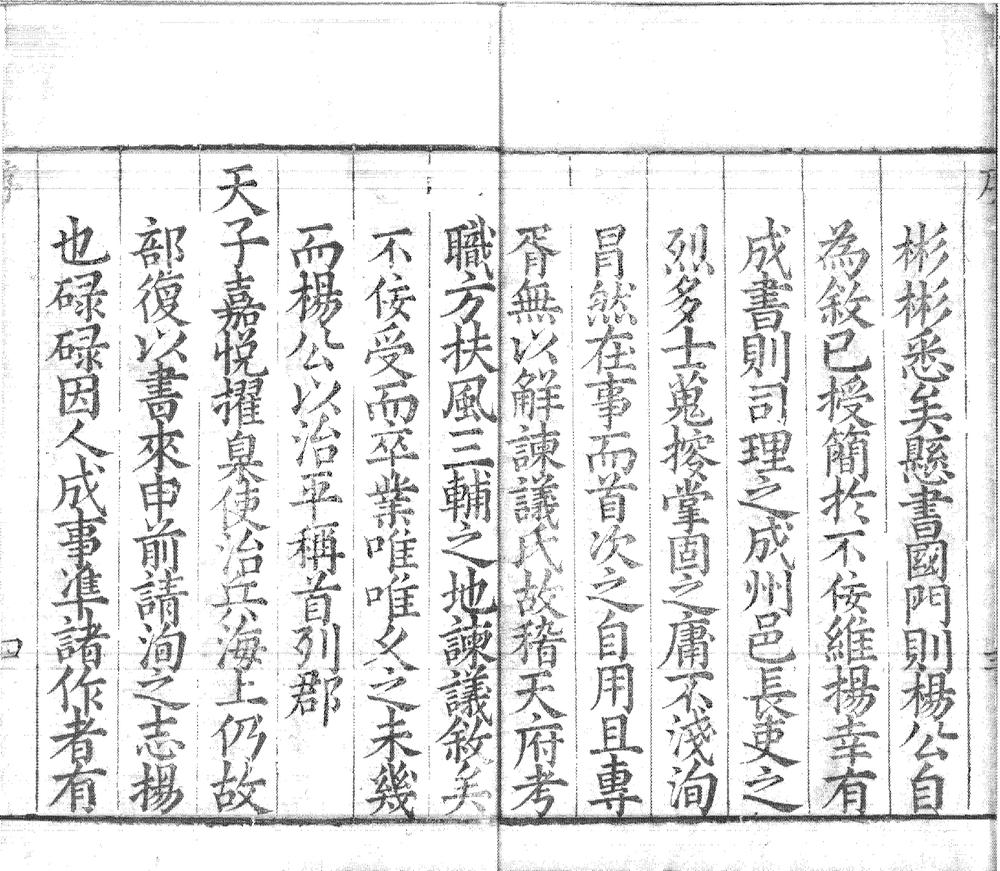 彬彬悉矣懸書國門則楊公自
為敘已授簡於不佞維揚幸有
成書則司理之成州邑長吏之
烈多士蒐㩴掌固之庸不淺洵
冐然在事而首次之自用且專
胥無以解諫議氏故稽天府考
職方扶風三輔之地諫議敘矣
不佞受而卒業唯唯久之未幾
而楊公以治平稱首列郡
天子嘉悅擢臬使治兵海上仍故
部復以書來申前請洵之志楊
也碌碌因人成事準諸作者有